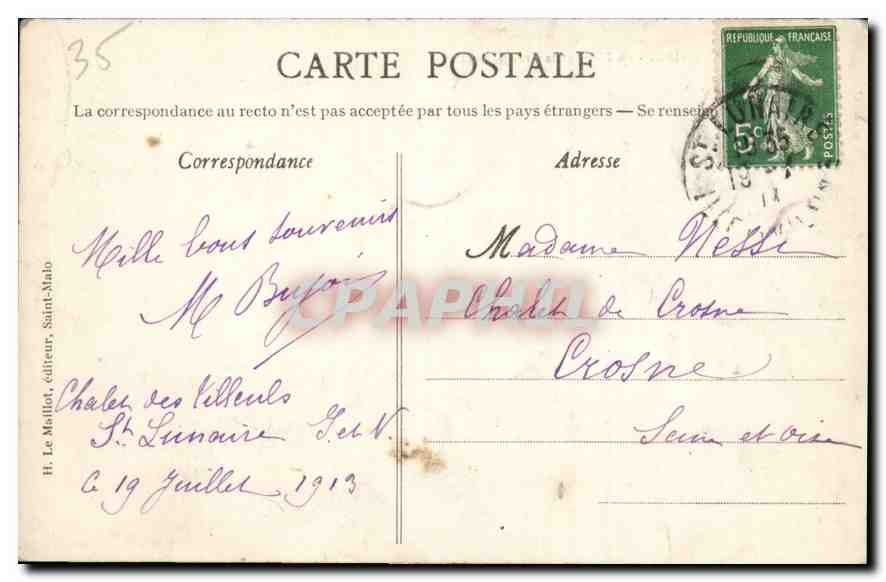 35
CARTE POSTALE
RÉPUBLIQUE FRANÇAISE
5c
POSTES
ST LUNAIRE
La correspondance au recto n'est pas acceptée par tous les pays étrangers — Se renseig
Correspondance
Adresse
Mille bons souvenirs
M
Chalet des Tilleuls
St Lunaire I. et V.
Ce 19 Juillet 1913
Madame Nessi
Chalet de Crosne
Crosne
Seine et Oise
H. Le Maillot, éditeur, Saint-Malo
CPAPHIL